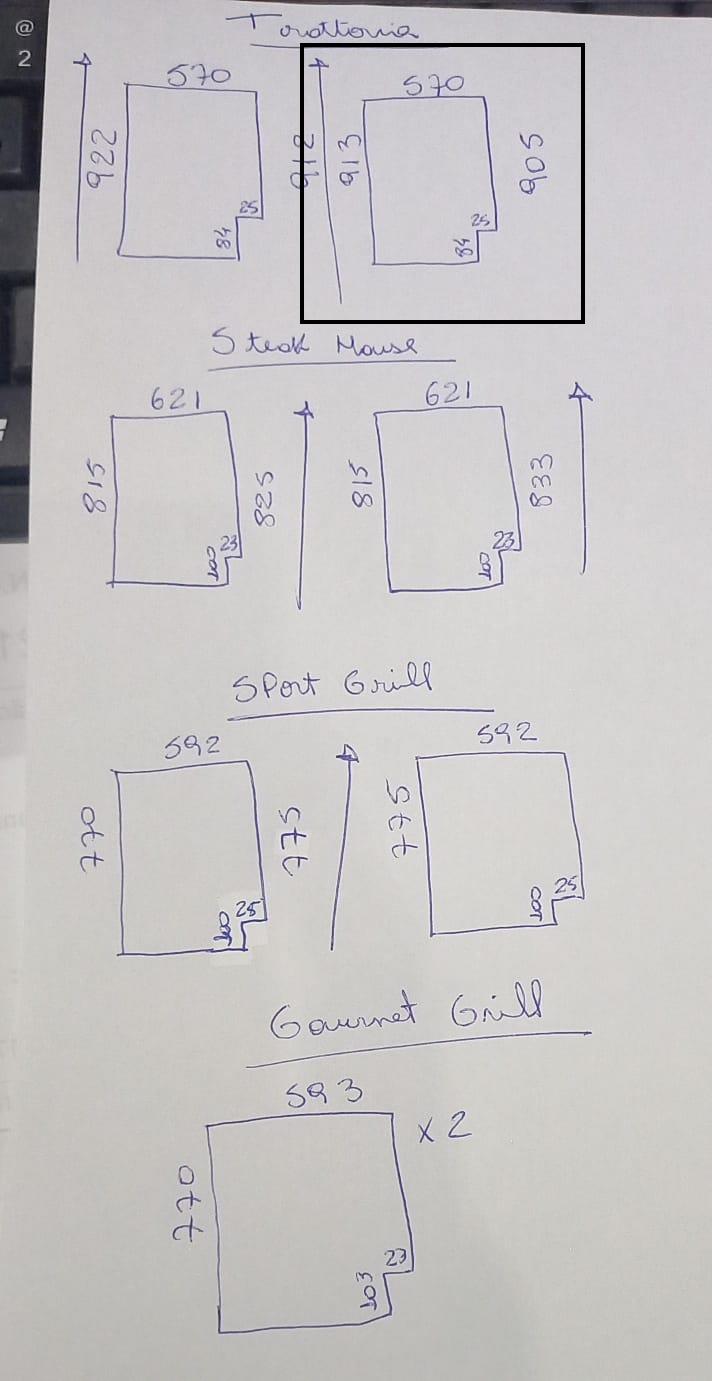 @
2
Torattoria
570 570
922 912 913 905
25 25
84 84
Steak House
621 621
815 825 815 833
23 23
100 100
Sport Grill
592 592
770 775 775
25 25
100 100
Gourmet Grill
593
x 2
770
23
103